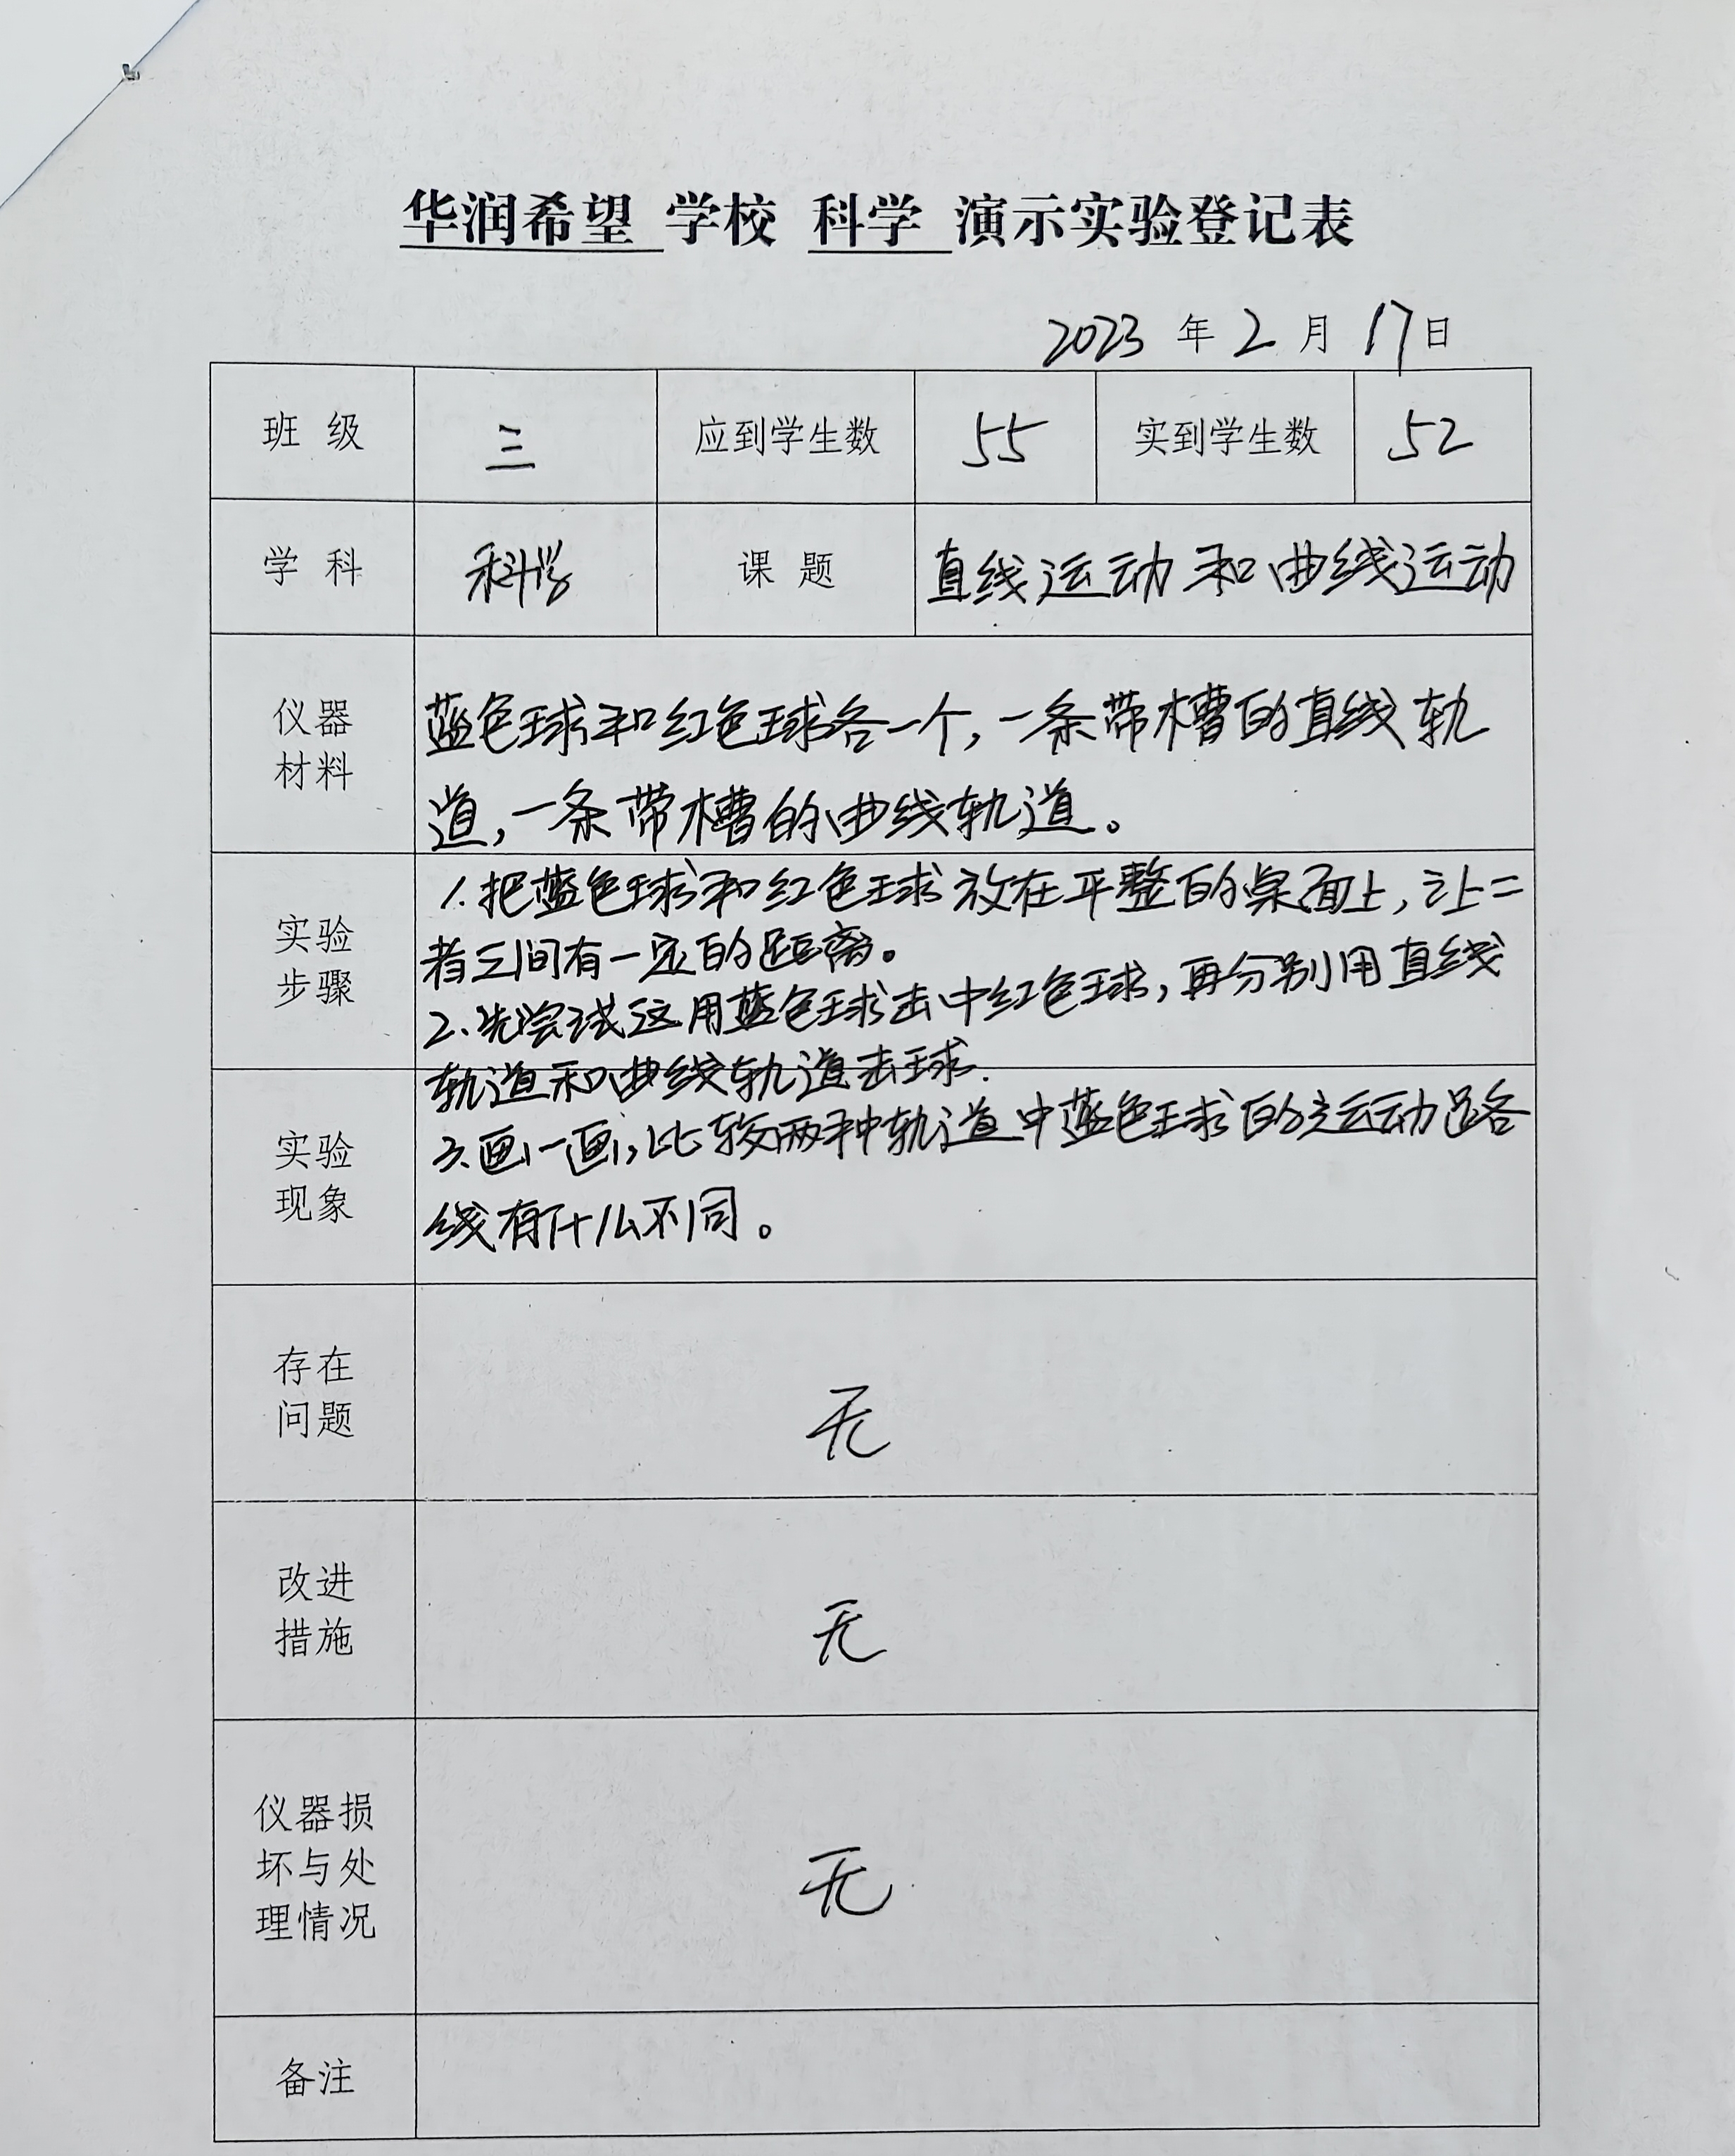 华润希望 学校 科学 演示实验登记表
2023 年 2 月 17 日
班 级 三 应到学生数 55 实到学生数 52
学 科 科学 课 题 直线运动和曲线运动
仪器
材料
蓝色球和红色球各一个,一条带槽的直线轨
道,一条带槽的曲线轨道。
实验
步骤
1.把蓝色球和红色球放在平整的桌面上,让二
者之间有一定的距离。
2.先尝试用蓝色球击中红色球,再分别用直线
轨道和曲线轨道击球.
实验
现象
3.画一画,比较两种轨道中蓝色球的运动路
线有什么不同。
存在
问题
无
改进
措施
无
仪器损
坏与处
理情况
无
备注